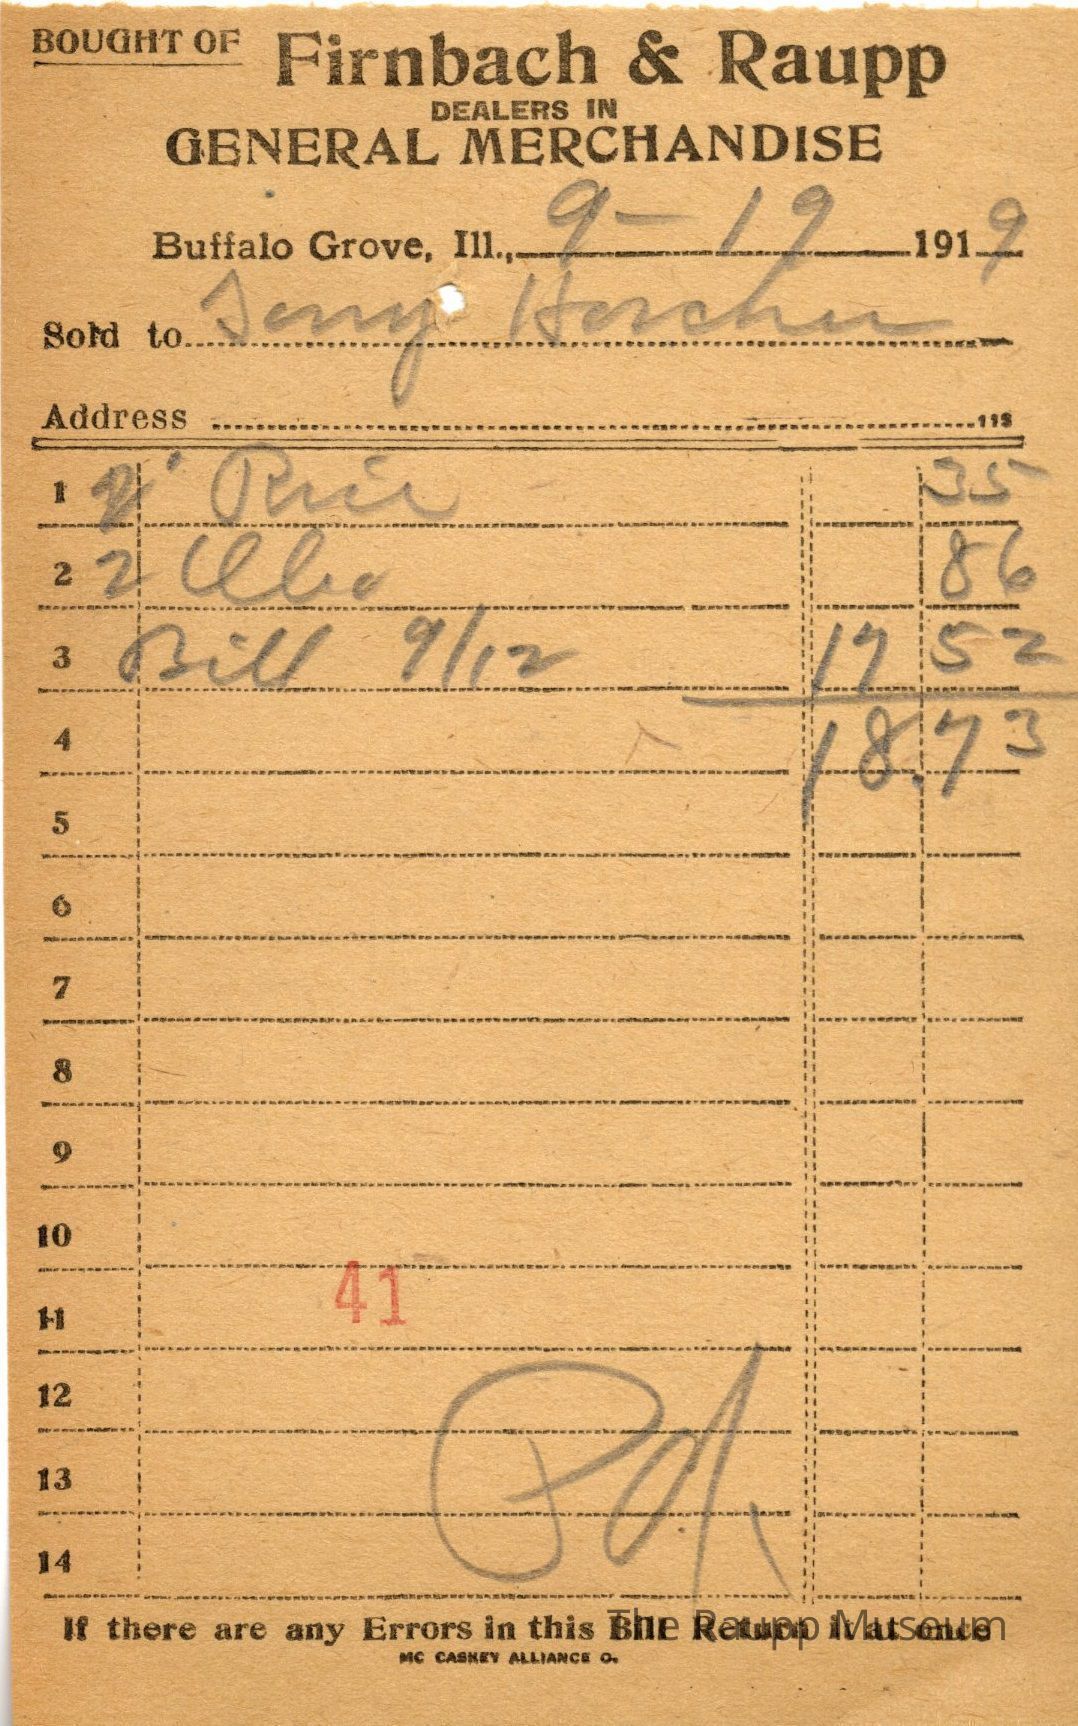 BOUGHT OF Firnbach & Raupp
DEALERS IN
GENERAL MERCHANDISE
Buffalo Grove, Ill., 9-19 1919
Sold to Tony Horcher
Address 113
1 2 Rice 35
2 2 86
3 Bill 9/12 17 52
4 18.73
5
6
7
8
9
10
41
11
12
13
14
Pd.
If there are any Errors in this Bill Return it at once
The Raupp Museum
MC CASKEY ALLIANCE O.